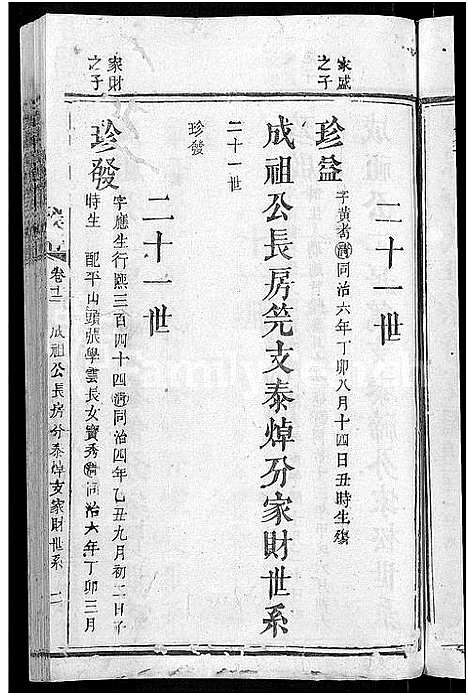 二十一世
家盛之子
珍益
字黃耇清同治六年丁卯八月十四日丑時生殤
成祖公長房筦支泰焯分家財世系
二十一世
珍發
二十一世
家財之子
珍發
字應生行熙三百四十四清同治四年乙丑九月初二日子
時生 配平山頭張學雲長女寶秀清同治六年丁卯三月
卷十二 成祖公長房分泰焯支家財世系 二